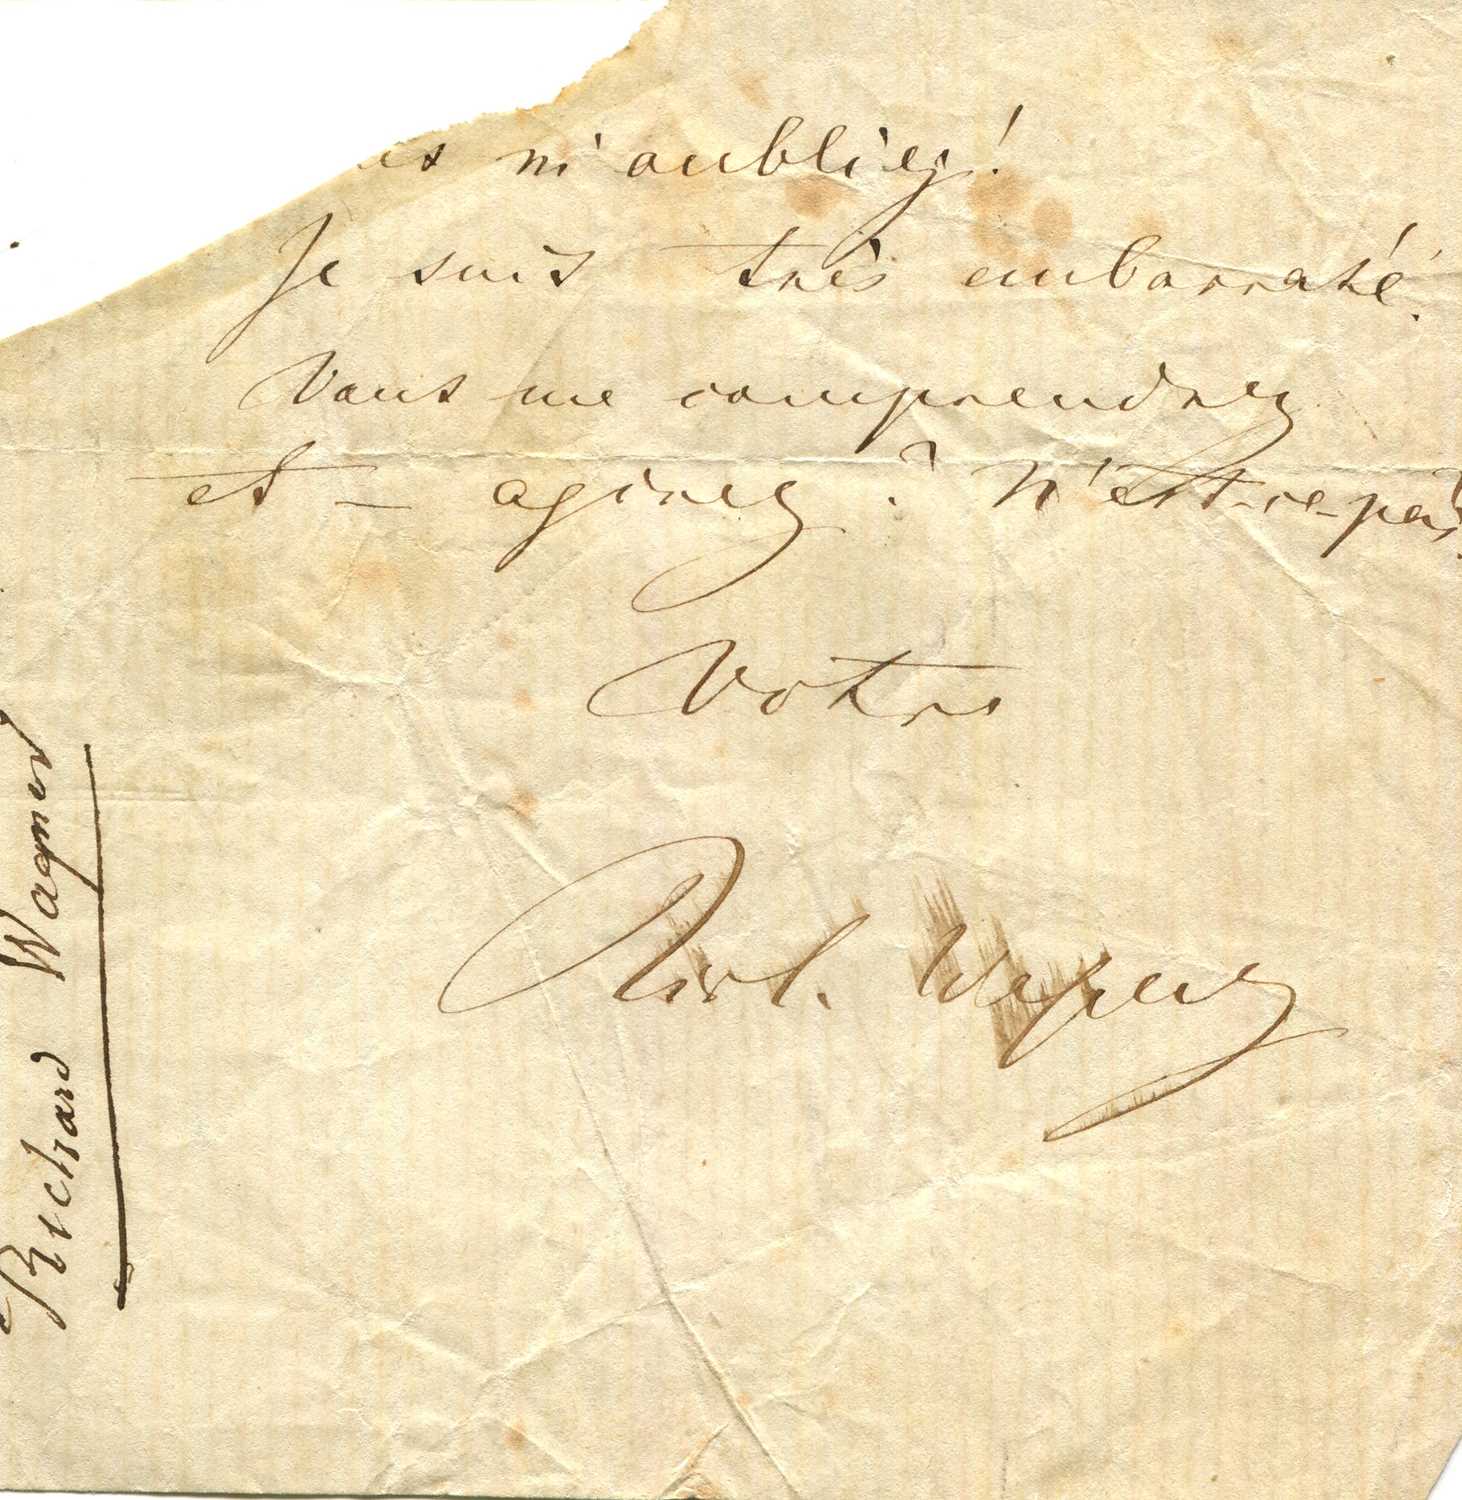 m'oubliez!
Je suis très embarrassé.
Vous me comprendrez
et — agirez? N'est-ce-pas?
Votre
Rich. Wagner
Richard Wagner